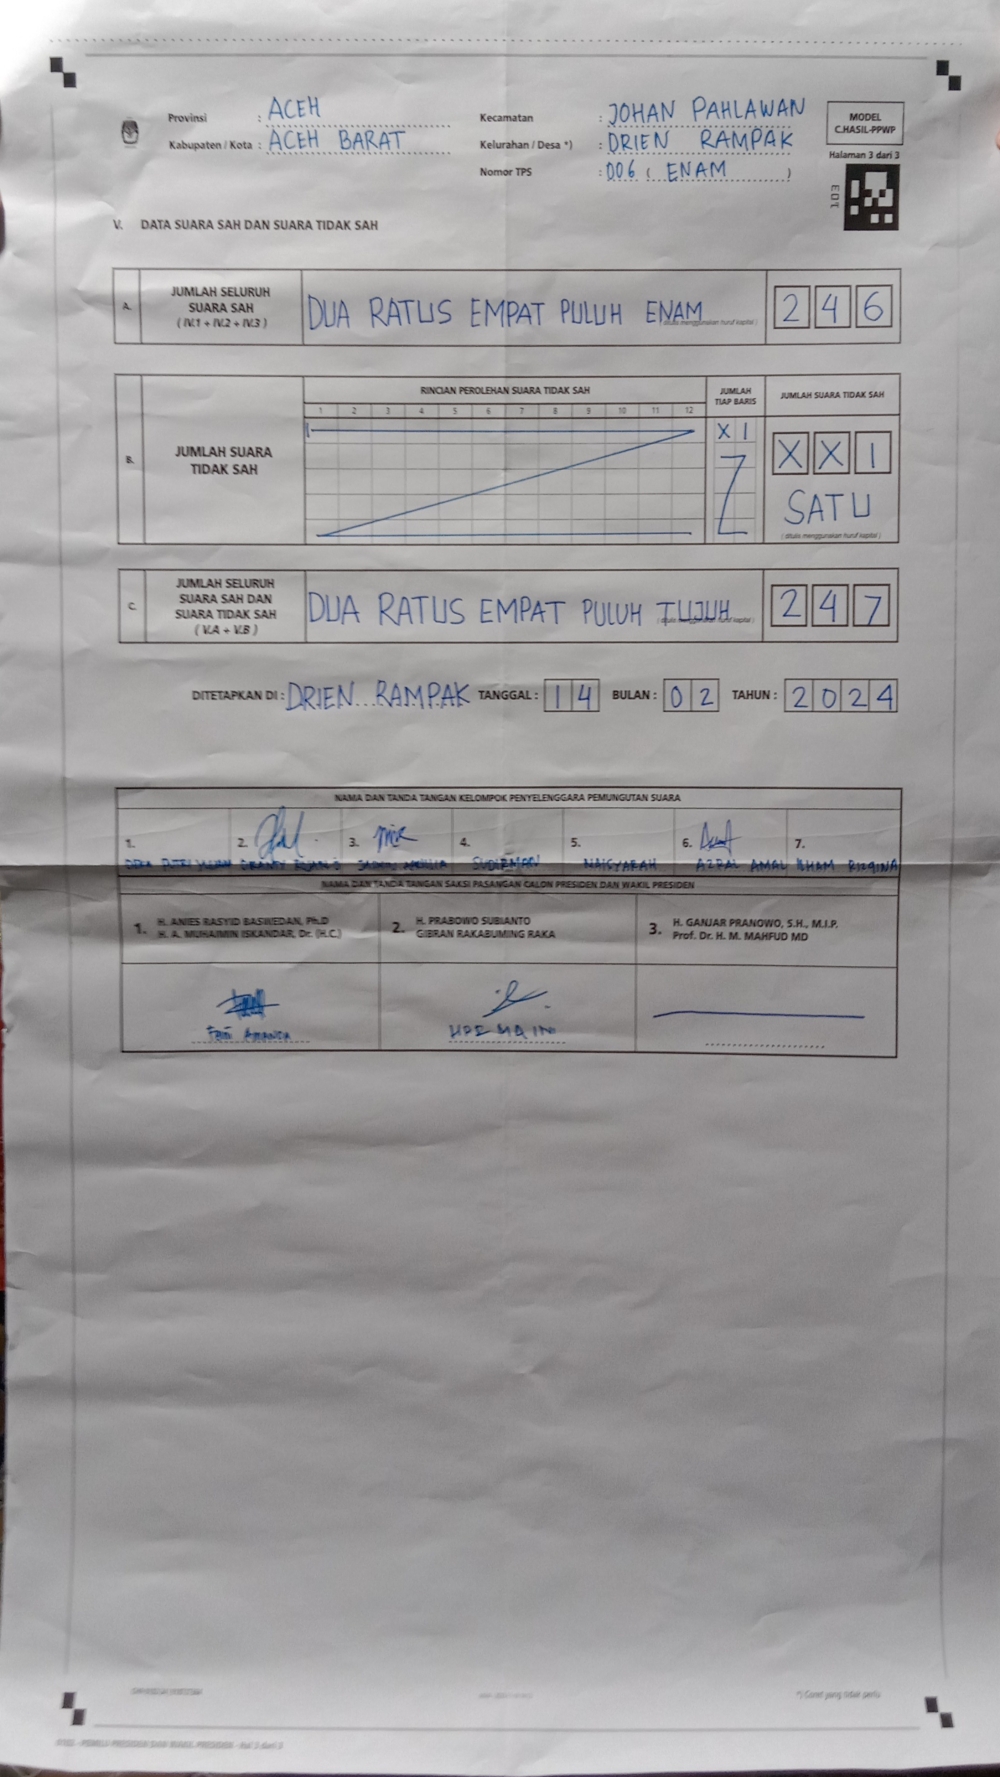 Provinsi : ACEH
Kabupaten / Kota : ACEH BARAT
Kecamatan : JOHAN PAHLAWAN
Kelurahan / Desa *) : DRIEN RAMPAK
Nomor TPS : 006 ( ENAM )
MODEL
C.HASIL-PPWP
Halaman 3 dari 3
E01
V. DATA SUARA SAH DAN SUARA TIDAK SAH
A. JUMLAH SELURUH SUARA SAH ( IV.1 + IV.2 + IV.3 ) DUA RATUS EMPAT PULUH ENAM 2 4 6
(ditulis menggunakan huruf kapital)
RINCIAN PEROLEHAN SUARA TIDAK SAH JUMLAH TIAP BARIS JUMLAH SUARA TIDAK SAH
1 2 3 4 5 6 7 8 9 10 11 12
B. JUMLAH SUARA TIDAK SAH X 1 X X 1
SATU
(ditulis menggunakan huruf kapital)
C. JUMLAH SELURUH SUARA SAH DAN SUARA TIDAK SAH ( V.A + V.B ) DUA RATUS EMPAT PULUH TUJUH 2 4 7
(ditulis menggunakan huruf kapital)
DITETAPKAN DI : DRIEN RAMPAK TANGGAL : 1 4 BULAN : 0 2 TAHUN : 2 0 2 4
NAMA DAN TANDA TANGAN KELOMPOK PENYELENGGARA PEMUNGUTAN SUARA
1. 2. 3. 4. 5. 6. 7.
SUDIRMAN NAISYARAH AZRAL AMAL ILHAM
NAMA DAN TANDA TANGAN SAKSI PASANGAN CALON PRESIDEN DAN WAKIL PRESIDEN
1. H. ANIES RASYID BASWEDAN, Ph.D
H. A. MUHAIMIN ISKANDAR, Dr. (H.C.)
2. H. PRABOWO SUBIANTO
GIBRAN RAKABUMING RAKA
3. H. GANJAR PRANOWO, S.H., M.I.P.
Prof. Dr. H. M. MAHFUD MD
AMANDA
*) Coret yang tidak perlu